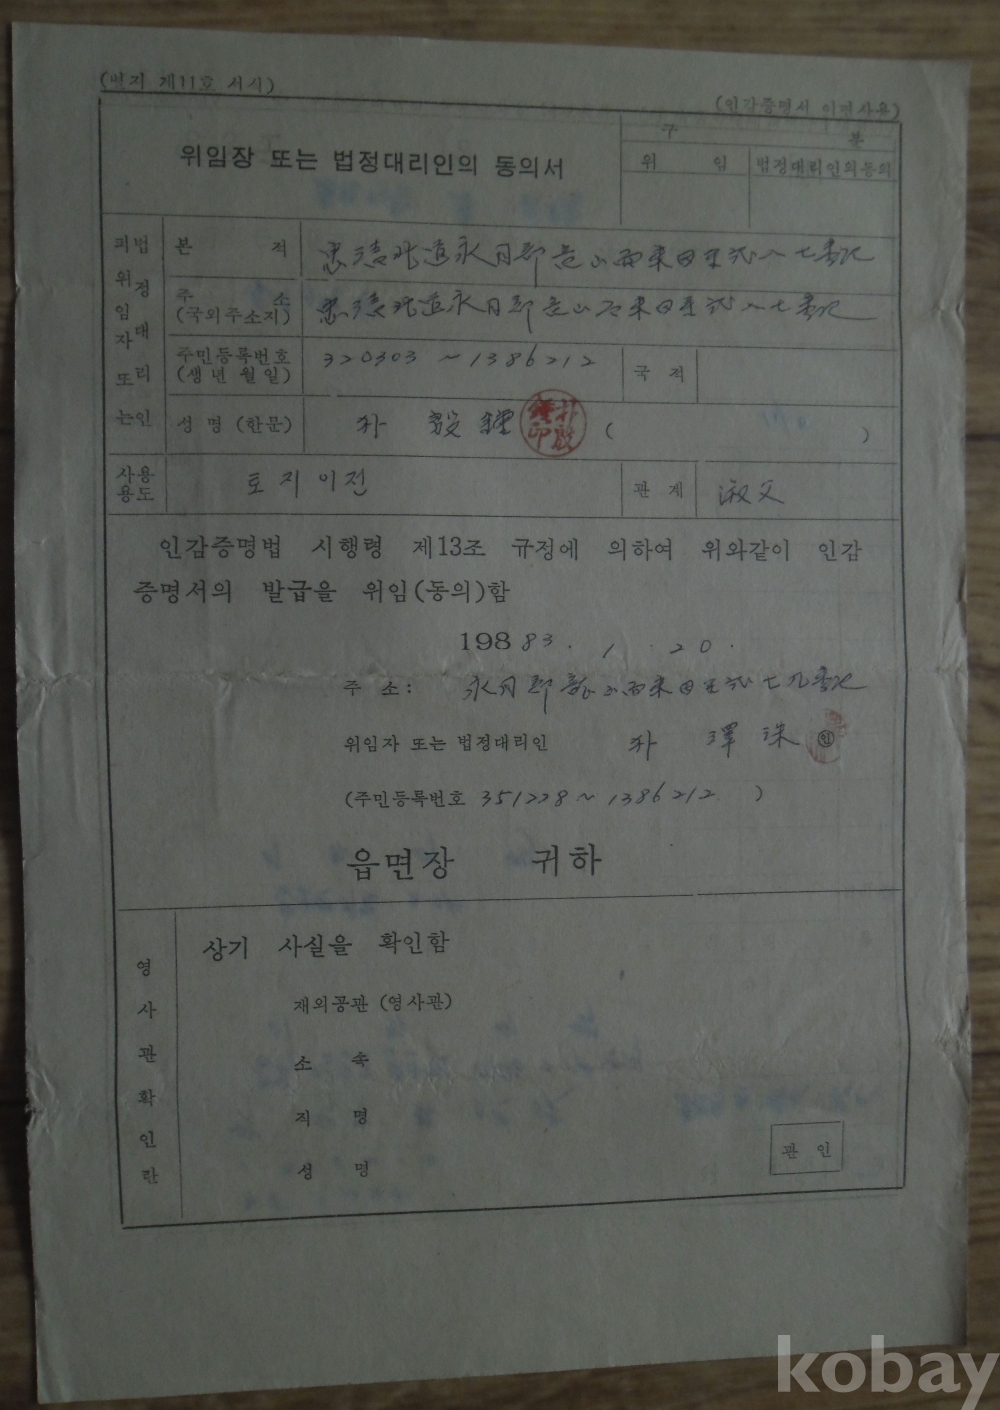 (별지 제11호 서식)
(인감증명서 이면사용)
위임장 또는 법정대리인의 동의서
구 분
위 임
법정대리인의동의
피위임자 또는
법정대리인
본 적
忠淸北道永同郡 山面 田里 八七番地
주 소
(국외주소지)
忠淸北道永同郡 山面 田里 八七番地
주민등록번호
(생년월일)
320303 ~ 1386212
국 적
성 명 (한문)
朴 鍾
( )
사용
용도
토지이전
관 계
淑父
인감증명법 시행령 제13조 규정에 의하여 위와같이 인감
증명서의 발급을 위임(동의)함
198 83. 1. 20.
주 소:
永同郡 山面 田里 七九番地
위임자 또는 법정대리인
朴 澤洙 ㊞
(주민등록번호 351228 ~ 1386212 )
읍면장 귀하
영사관확인란
상기 사실을 확인함
재외공관 (영사관)
소 속
직 명
성 명
관 인
kobay